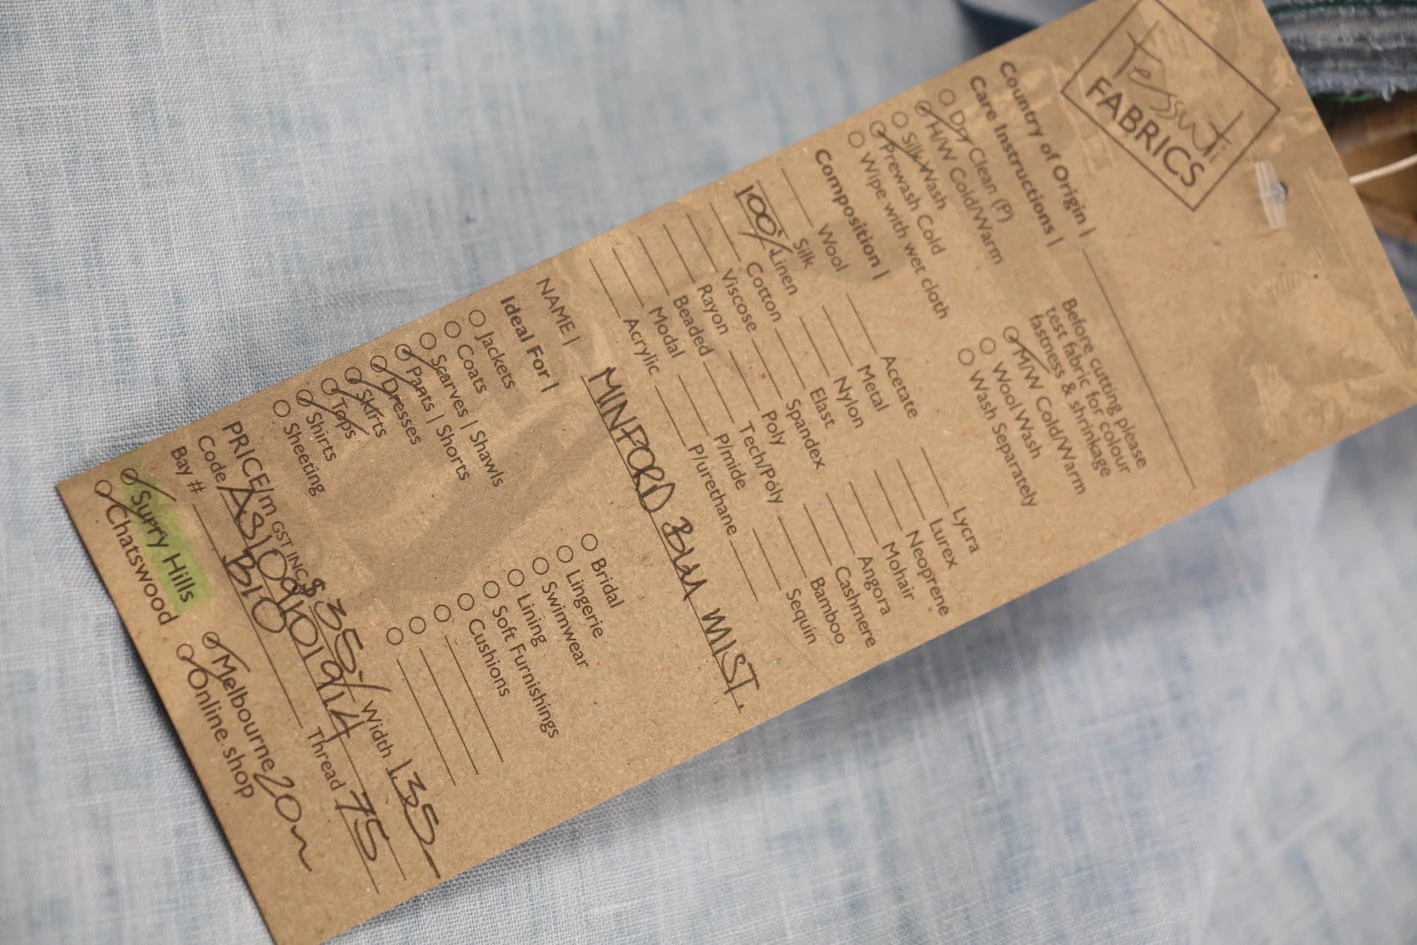 Tessuti
FABRICS
Country of Origin |
Care Instructions |
Dry Clean (P)
H/W Cold/Warm
Silk Wash
Prewash Cold
Wipe with wet cloth
Before cutting please
test fabric for colour
fastness & shrinkage
M/W Cold/Warm
Wool Wash
Wash Separately
Composition |
Wool
Silk
100% Linen
Cotton
Viscose
Rayon
Beaded
Modal
Acrylic
Acetate
Metal
Nylon
Elast
Spandex
Poly
Tech/Poly
P/mide
P/urethane
Lycra
Lurex
Neoprene
Mohair
Angora
Cashmere
Bamboo
Sequin
NAME | MINFORD BLU MIST.
Ideal For |
Jackets
Coats
Scarves | Shawls
Pants | Shorts
Dresses
Skirts
Tops
Shirts
Sheeting
Bridal
Lingerie
Swimwear
Lining
Soft Furnishings
Cushions
PRICE/m GST INC $35/ Width 135
Code Thread 75
Bay # B10
Surry Hills
Chatswood
Melbourne 20m
Online shop